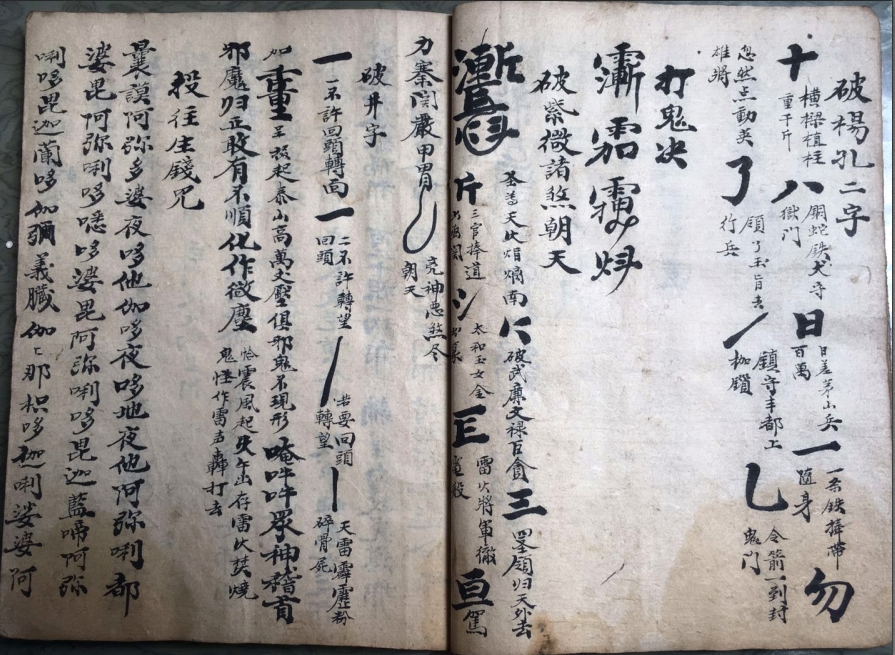 破楊孔二字
十 橫樑植柱重千斤 八 銅蛇鉄犬守獄門 日 日差茅山兵百萬 一 一条鉄捧帶隨身 勿
忽然点動英雄將 了 領了玉旨去行兵 ノ 鎮守丰都上枷鎖 乚 令箭一到封鬼門
打鬼决
破紫微諸煞朝天
普天火焰燭南 破武廉文禄巨貪 三 罡領归天外去
斤 三官捧道 太和玉女全 雷火將軍徹 亘 駕
力寨関嚴甲冑 亮神忽然尽朝天
破井字
一 一不許回頭轉面 一 二不許轉望回頭 丿 若要回頭轉望 丨 天雷霹靂粉碎骨死
如 三拔起泰山高萬丈壓俱邪鬼不現形 唵吽吽眾神稽首
邪魔归正敢有不順化作微塵 恰震風起鬼怪作雷声轟打去 存雷火焚燒
投往生錢咒
曩謨阿弥多婆夜哆他伽哆夜哆地夜他阿弥唎都
婆毘阿弥唎哆悉哆婆毘阿弥唎哆毘迦藍啼阿弥
唎哆毘迦蘭哆伽彌義臟伽〻那枳哆迦唎娑婆阿